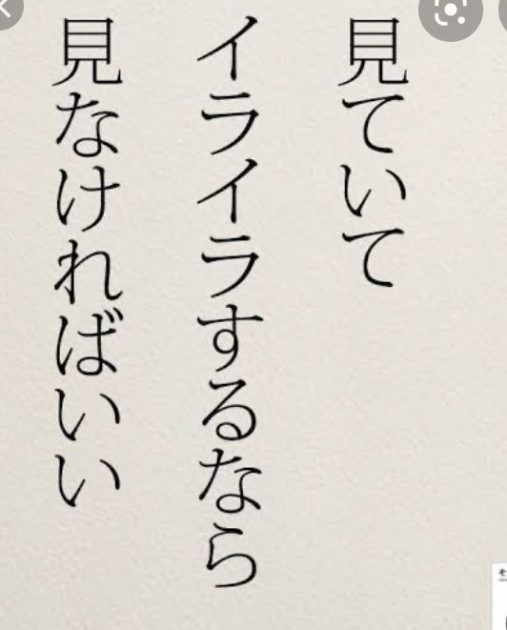 見ていて
イライラするなら
見なければいい